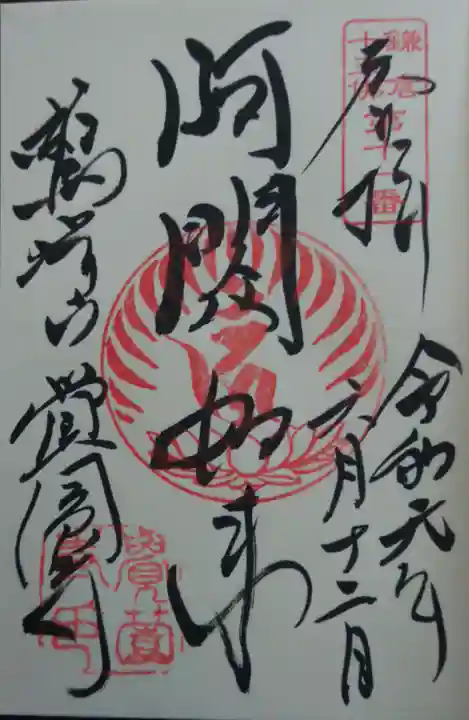 鎌倉
十三佛第十一番
奉拝
令和元年
六月十二日
阿閦如来
鷲峰山覚園寺
覺園